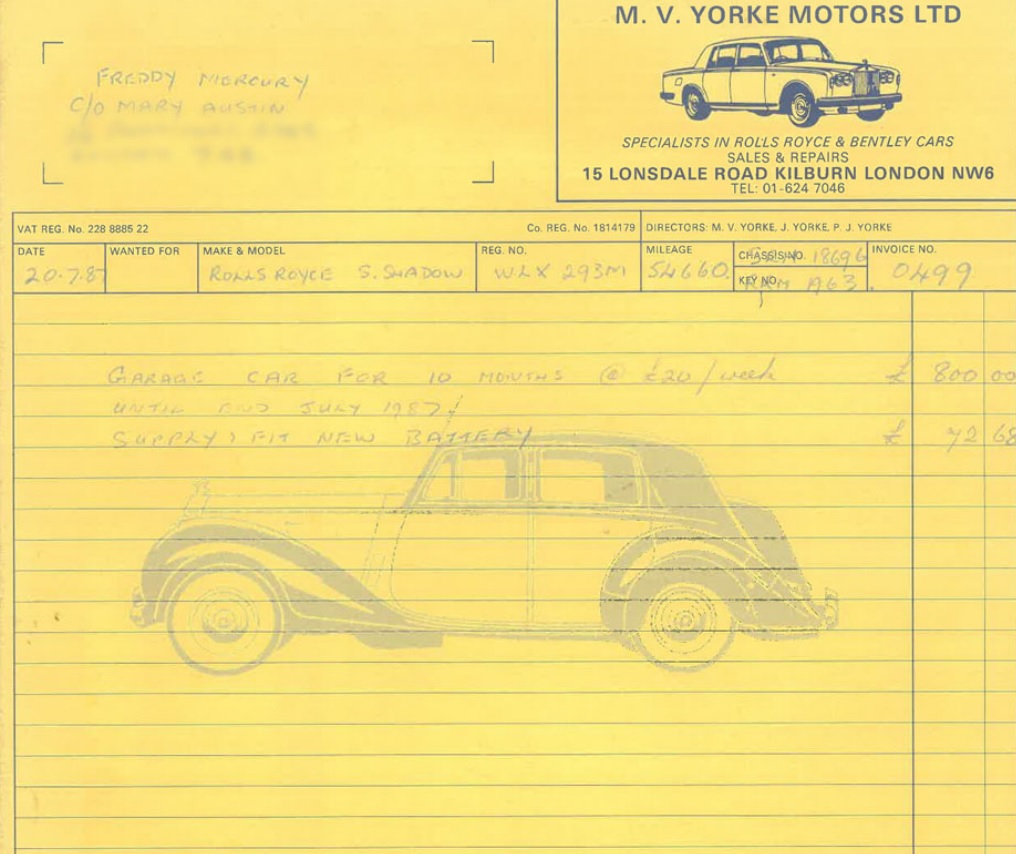 M. V. YORKE MOTORS LTD
SPECIALISTS IN ROLLS ROYCE & BENTLEY CARS
SALES & REPAIRS
15 LONSDALE ROAD KILBURN LONDON NW6
TEL: 01-624 7046
FREDDY MERCURY
C/O MARY AUSTIN
VAT REG. No. 228 8885 22 Co. REG. No. 1814179 DIRECTORS: M. V. YORKE, J. YORKE, P. J. YORKE
DATE WANTED FOR MAKE & MODEL REG. NO. MILEAGE CHASSIS NO. INVOICE NO.
20.7.87 ROLLS ROYCE S. SHADOW WLX 293M 54660. SRH 18696 0499
KEY NO. A63.
GARAGE CAR FOR 10 MONTHS @ £20/week £ 800 00
UNTIL END JULY 1987
SUPPLY & FIT NEW BATTERY £ 72 68